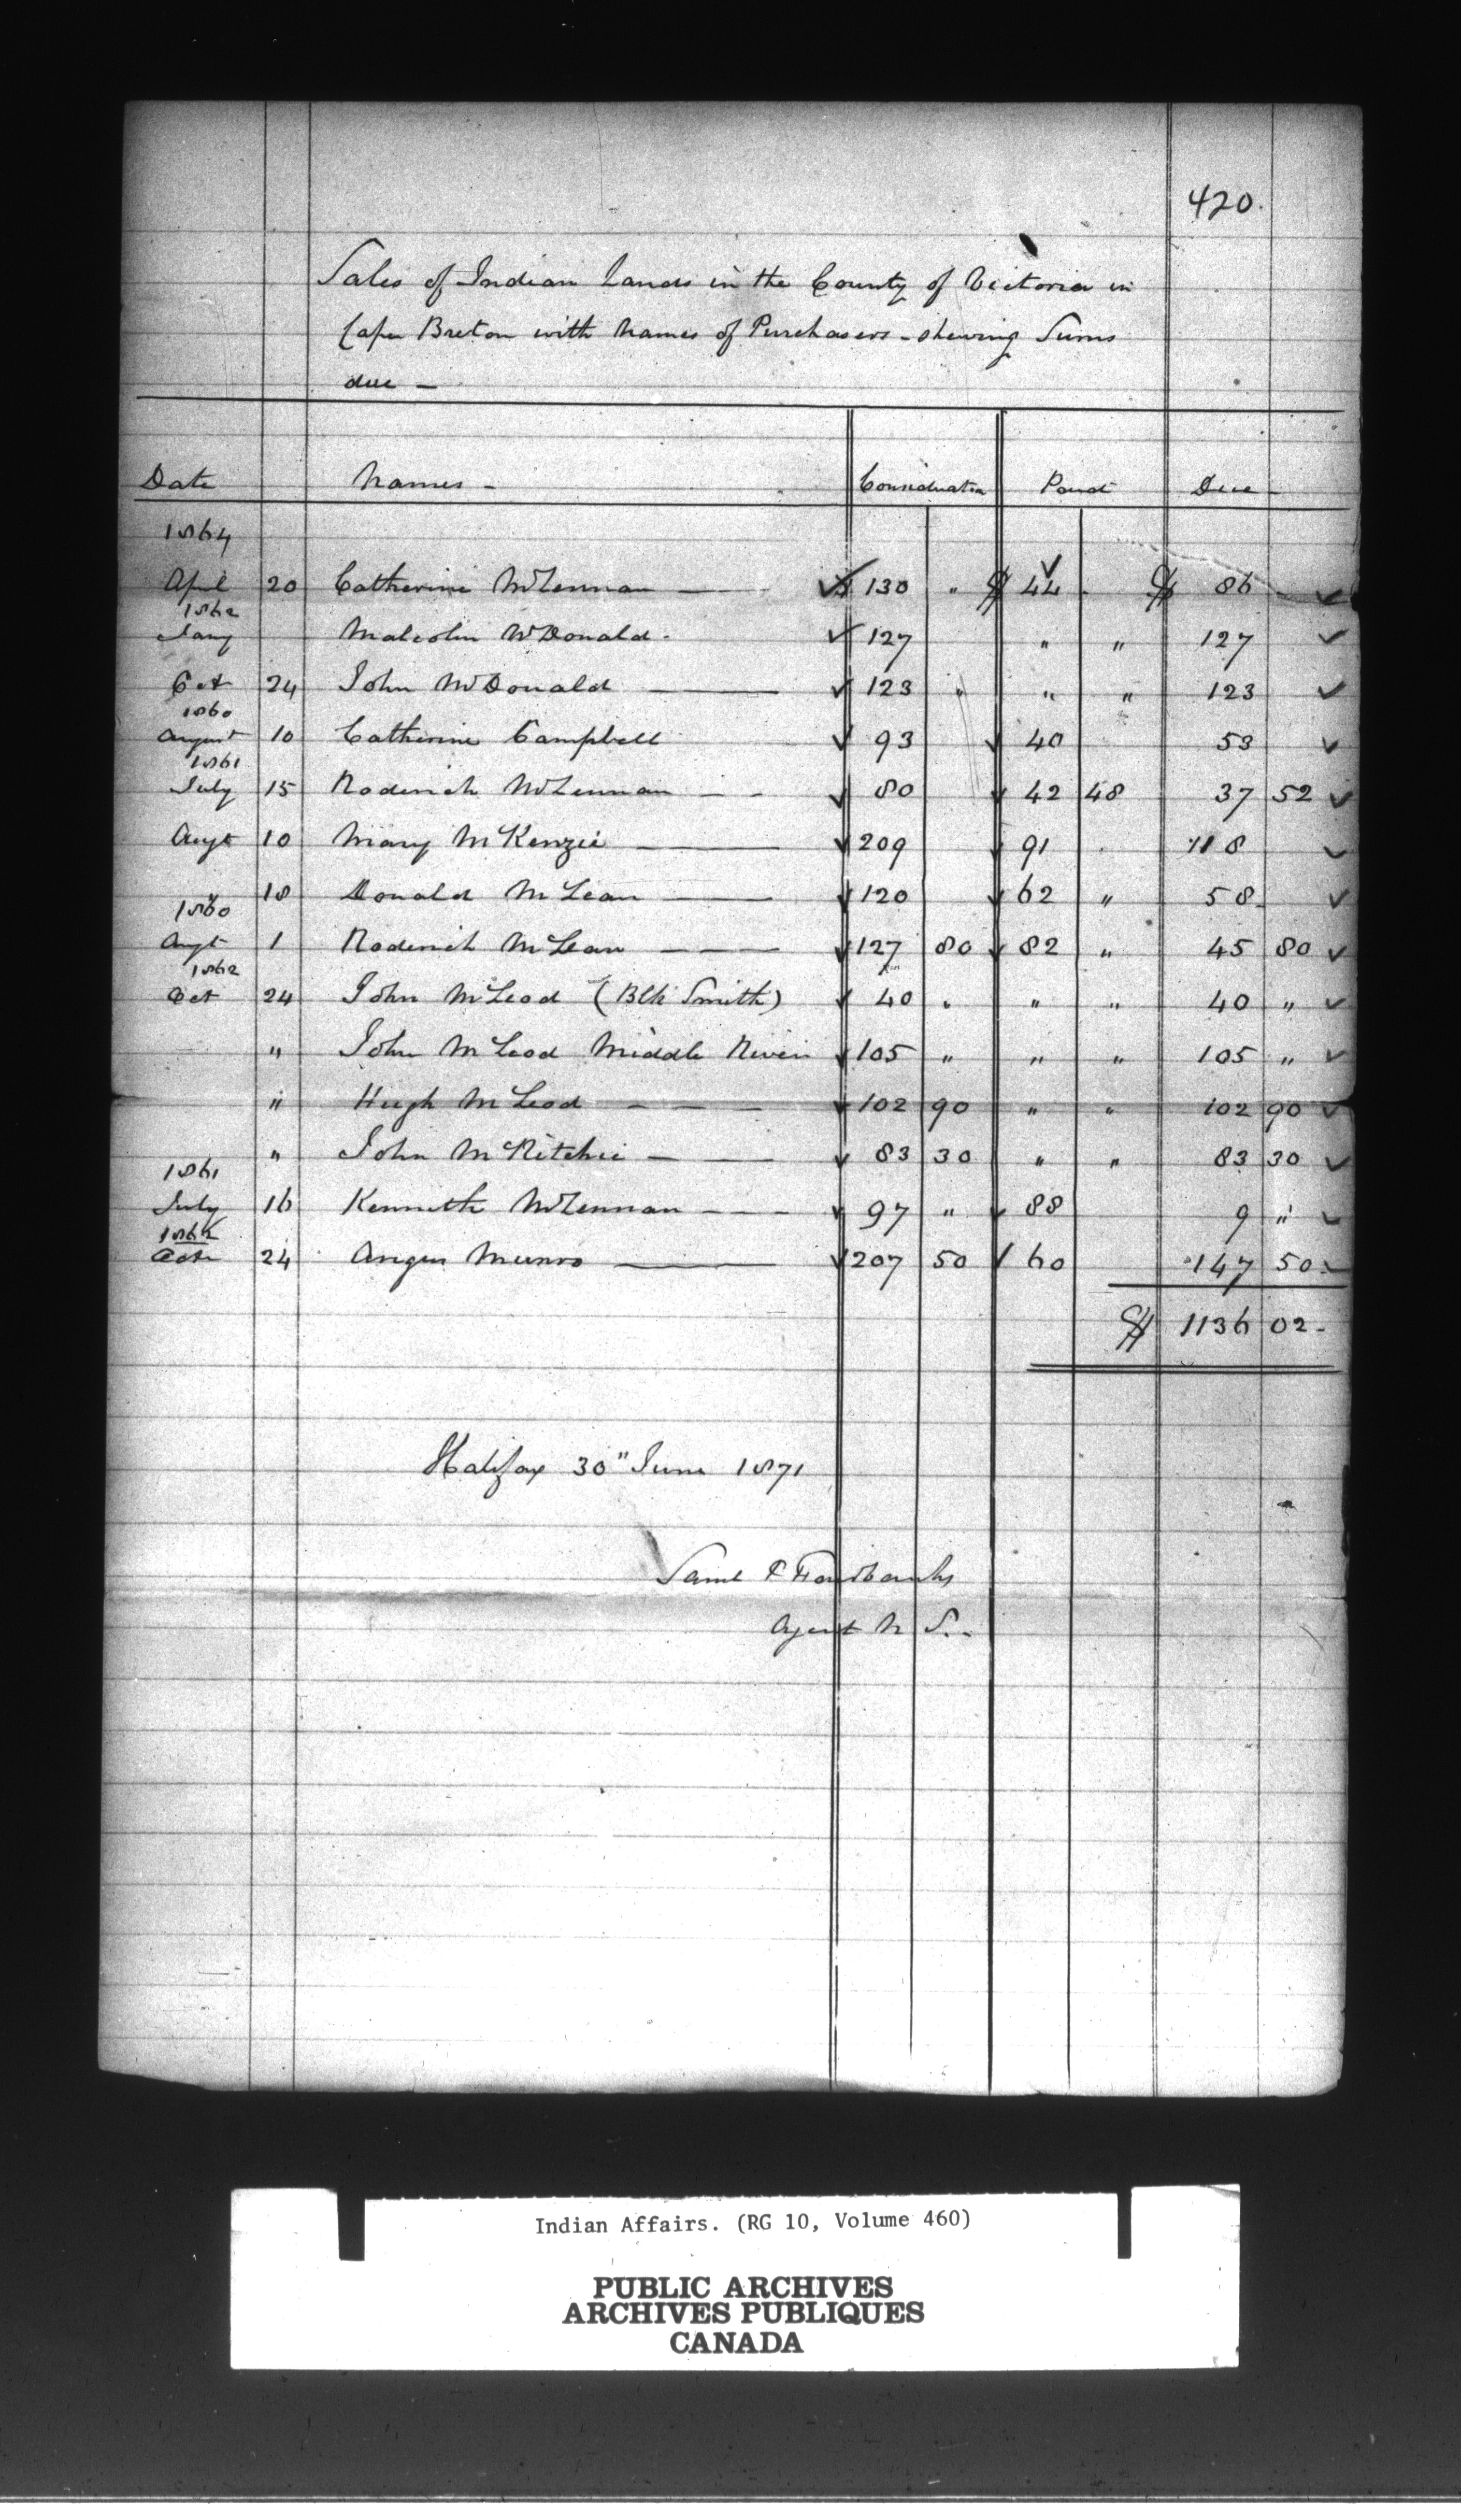 420.
Sales of Indian Lands in the County of Victoria in
Cape Breton with names of Purchasers - shewing Sums
due -
Date Names - Consideration Paid Due -
1864
April 20 Catherine McLennan $ 130 " $ 44 $ 86
1862
Jany Malcolm McDonald - 127 " " 127
Oct 24 John McDonald 123 " " " 123
1860
August 10 Catherine Campbell 93 40 53
1861
July 15 Roderick McLennan 80 42 48 37 52
Augt 10 Mary McKenzie 209 91 118
" 18 Donald McLean 120 62 " 58
1860
Augt 1 Roderick McLean 127 80 82 " 45 80
1862
Oct 24 John McLeod (Blk Smith) 40 " " " 40 "
" John McLeod Middle River 105 " " " 105 "
" Hugh McLeod 102 90 " " 102 90
" John McRitchie 83 30 " " 83 30
1861
July 16 Kenneth McLennan 97 " 88 9 "
1862
Octr 24 Angus Munro 207 50 60 147 50
$ 1136 02
Halifax 30" June 1871
Saml P Fairbanks
Agent N S.
Indian Affairs. (RG 10, Volume 460)
PUBLIC ARCHIVES
ARCHIVES PUBLIQUES
CANADA